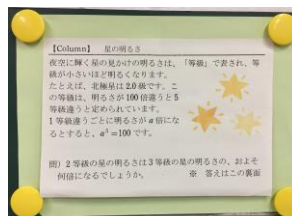 【Column】 星の明るさ
夜空に輝く星の見かけの明るさは、「等級」で表され、等
級が小さいほど明るくなります。
たとえば、北極星は2.0級です。こ
の等級は、明るさが100倍違うと5
等級違うと定められています。
1等級違うごとに明るさがa倍にな
るとすると、a⁵=100です。
問）2等級の星の明るさは3等級の星の明るさの、およそ
何倍になるでしょうか。 ※ 答えはこの裏面